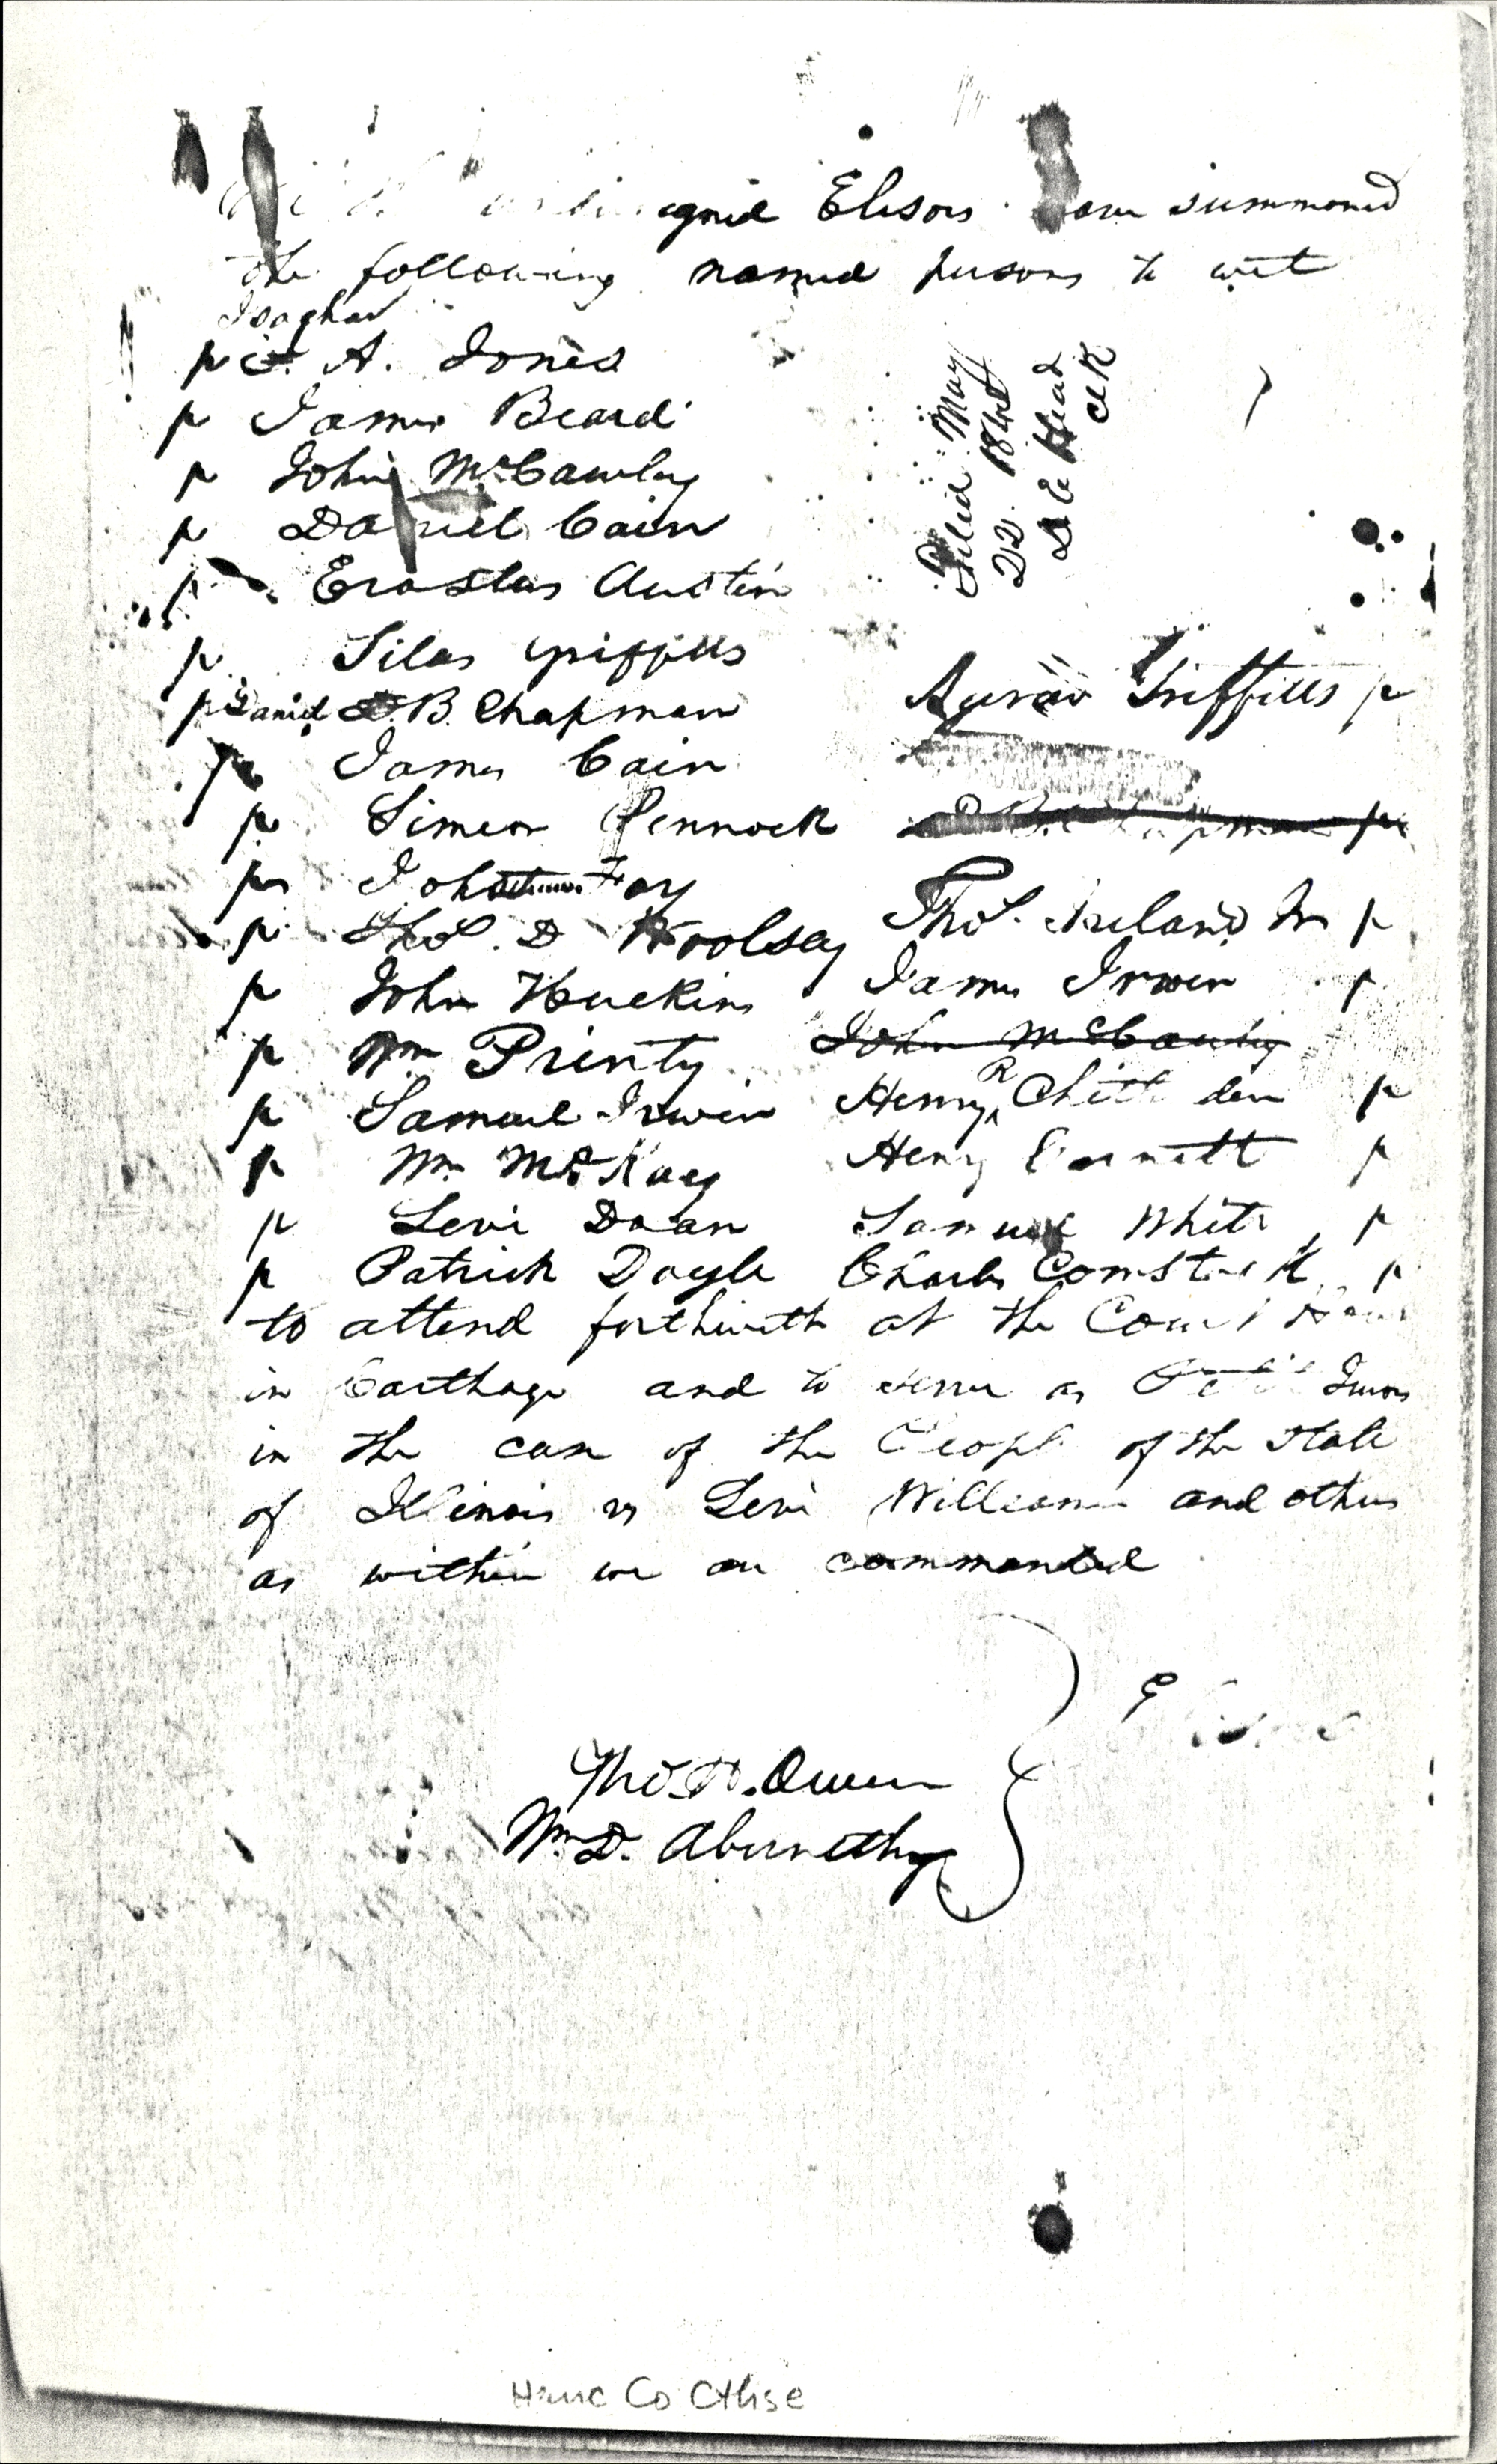 Elisors have summoned
the following named persons to wit
p A. Jones
p James Beard
p John McCawley
p Daniel Cain
p Erastus Austin
p Silas Griffitts
p Daniel B. Chapman
p James Cain
p Simeon Pennock
p Fay
p Thos. D Woolsey
p John Huckins
p Wm Printy
p Samuel Irwin
p Wm McKay
p Levi Doan
p Patrick Doyle
Filed May
22 1845
Head
clk
Griffitts p
Thos. Ireland p
James Irwin p
John McCauley
Henry R Chittenden p
Henry p
Samuel White p
Charles Comstock p
to attend forthwith at the Court House
in Carthage and to serve as Jurors
in the case of the People of the State
of Illinois vs Levi Williams and others
as within we are commanded
Elisors
Thos. H. Owen
Wm. D. Abernethy
Hanc Co Cthse